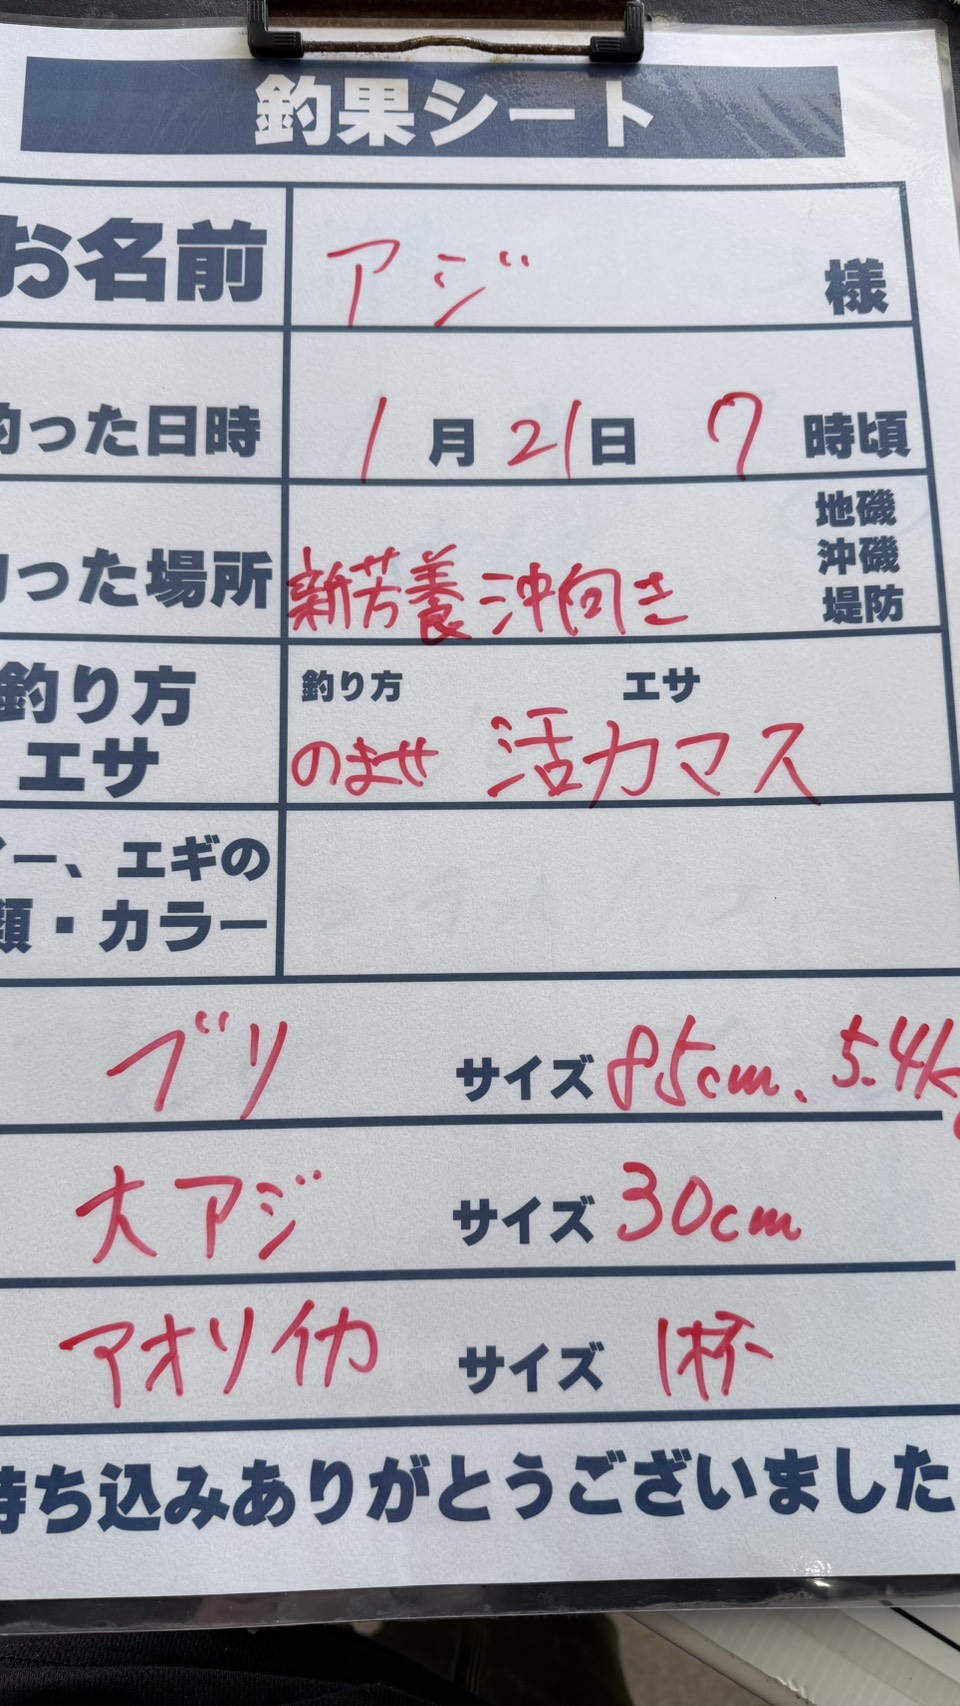 釣果シート
お名前 アジ 様
釣った日時 1月21日 7時頃
った場所 新芳養沖向き 地磯
沖磯
堤防
釣り方
エサ
釣り方 エサ
のませ 活カマス
ー、エギの
類・カラー
ブリ サイズ 85cm. 5.4kg
大アジ サイズ 30cm
アオリイカ サイズ 1杯
持ち込みありがとうございました